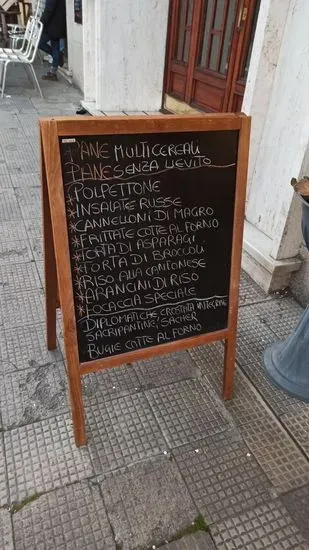 PANE MULTICEREALI
PANE SENZA LIEVITO
*POLPETTONE
*INSALATE RUSSE
*CANNELLONI DI MAGRO
*FRITTATE COTTE AL FORNO
*TORTA DI ASPARAGI
*TORTA DI BROCCOLI
*RISO ALLA CANTONESE
*ARANCINI DI RISO
*FOCACCIA SPECIALE
DIPLOMATICHE CROSTATA INTEGRALE
SACRIPANTINE, SACHER
BUGIE COTTE AL FORNO